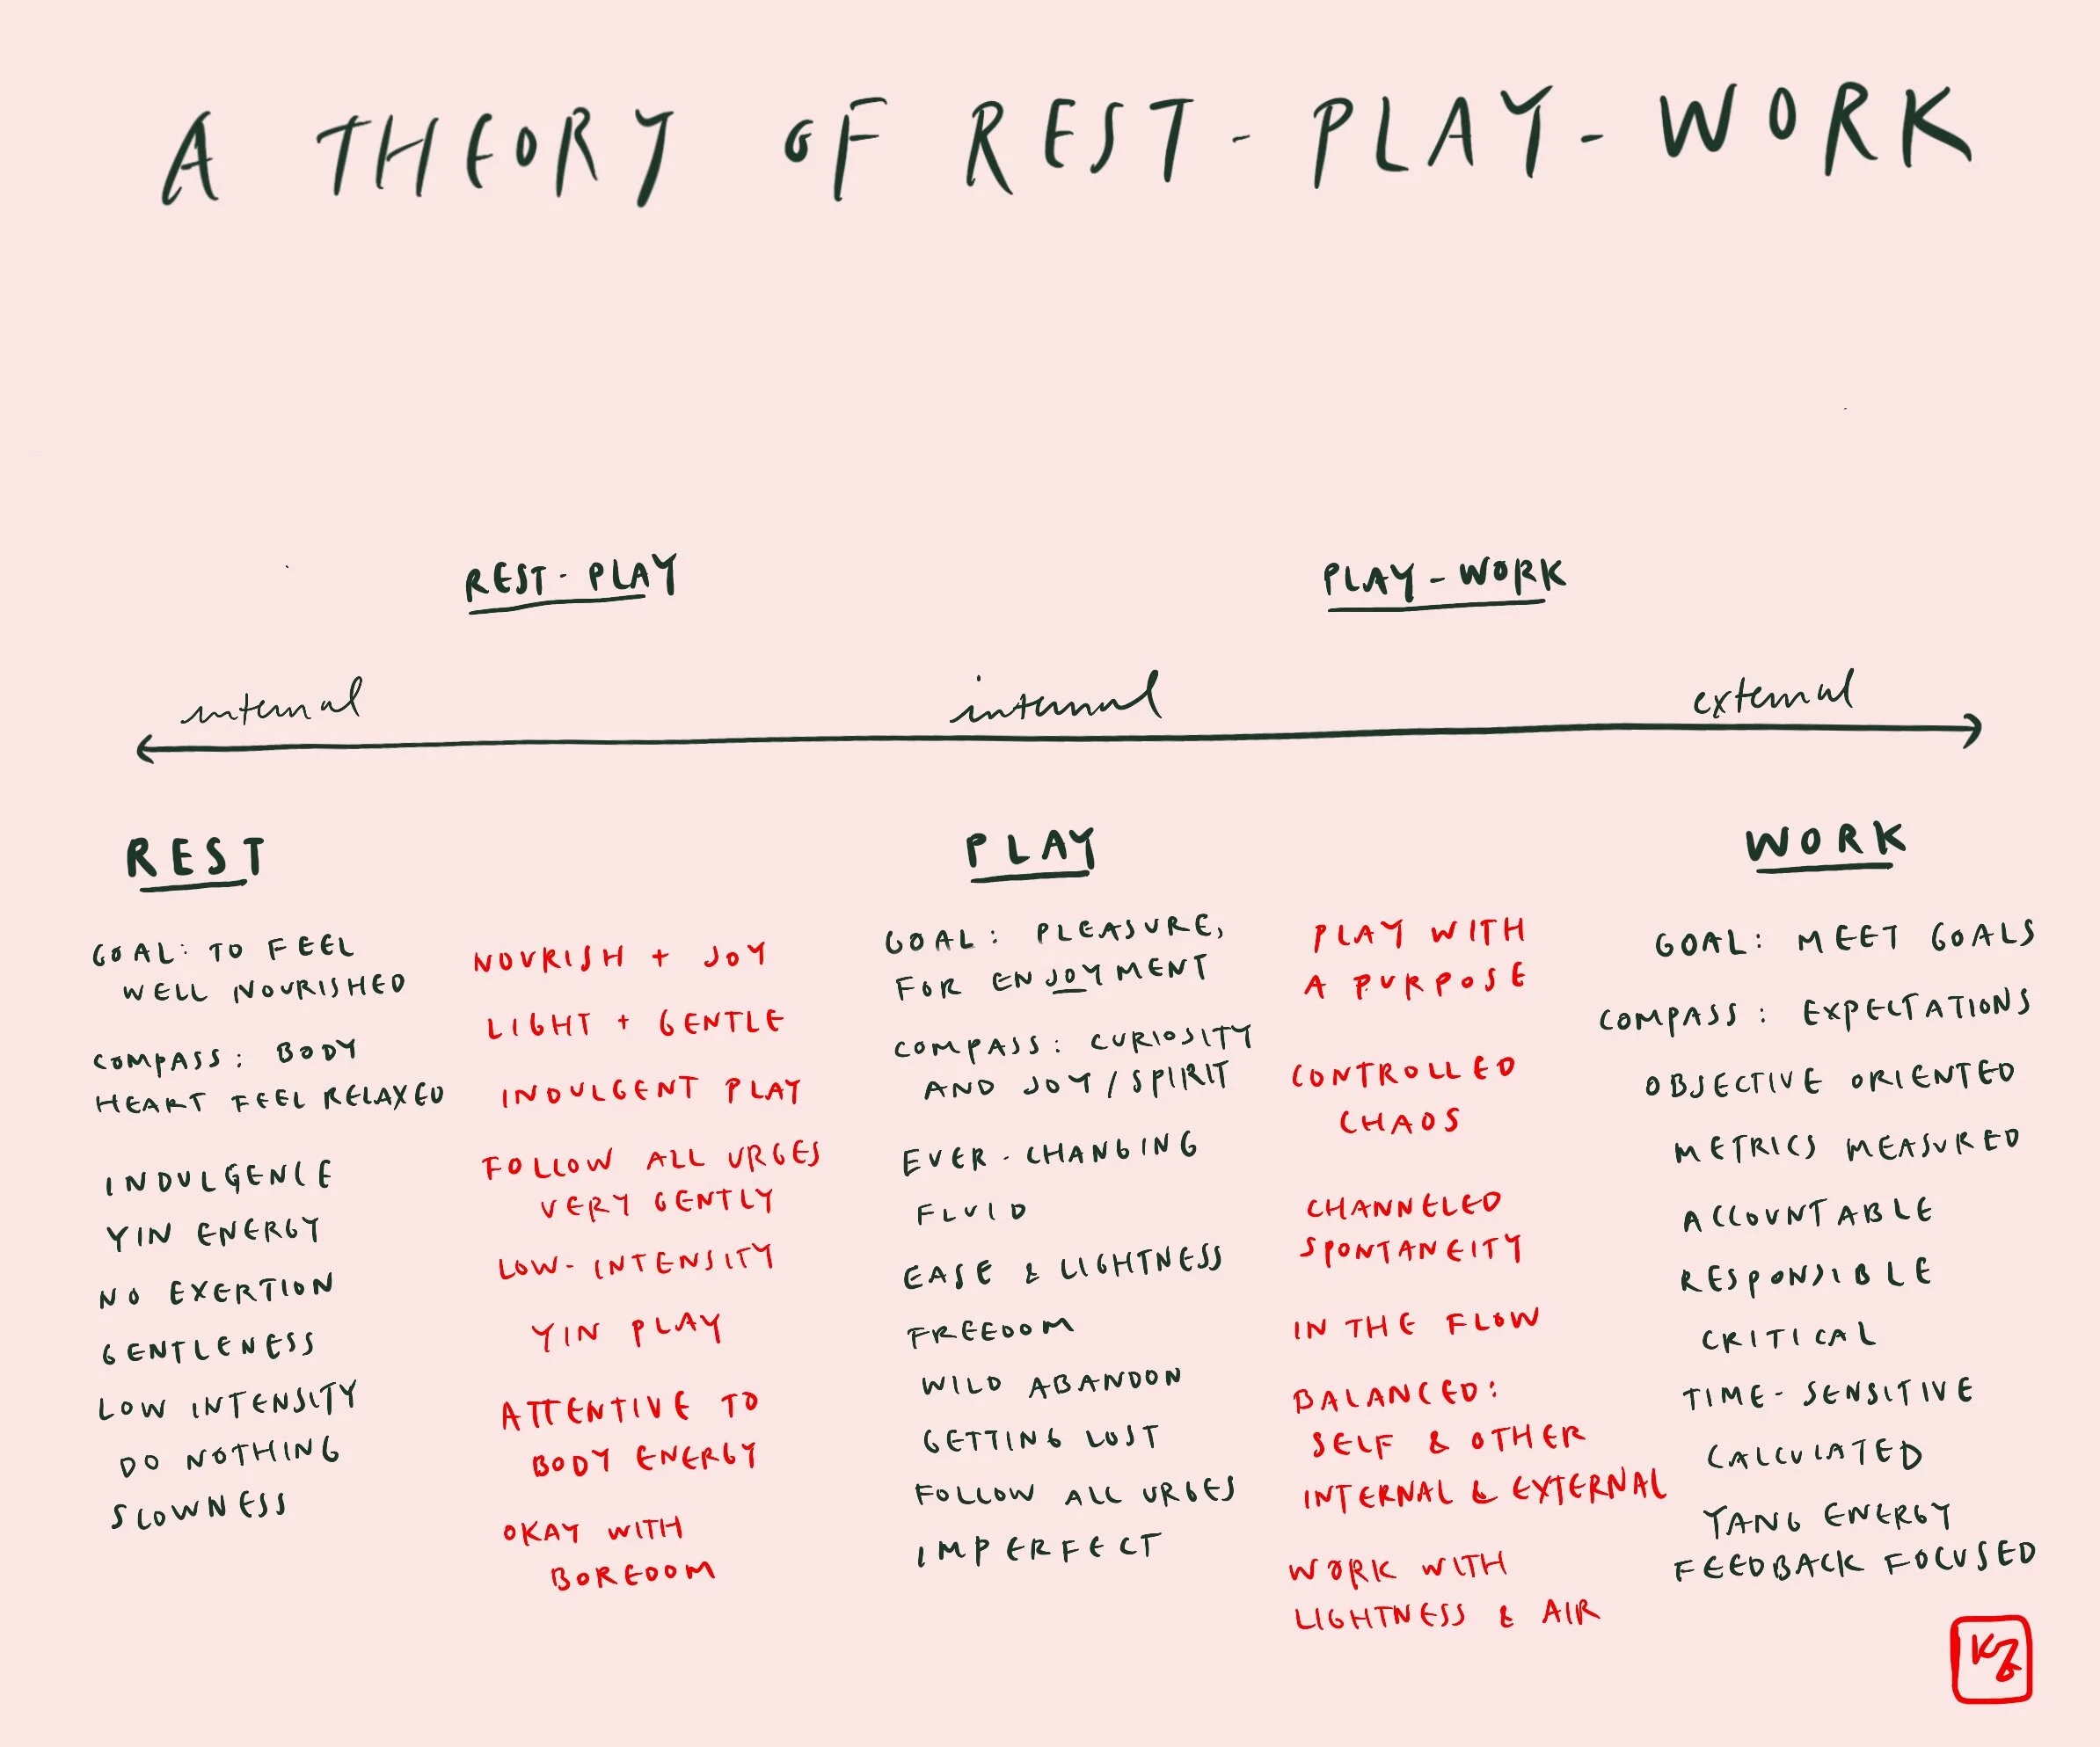 A THEORY OF REST-PLAY-WORK
REST-PLAY
PLAY-WORK
internal
internal
external
REST
GOAL: TO FEEL
WELL NOURISHED
COMPASS: BODY
HEART FEEL RELAXED
INDULGENCE
YIN ENERGY
NO EXERTION
GENTLENESS
LOW INTENSITY
DO NOTHING
SLOWNESS
NOURISH + JOY
LIGHT + GENTLE
INDULGENT PLAY
FOLLOW ALL URGES
VERY GENTLY
LOW-INTENSITY
YIN PLAY
ATTENTIVE TO
BODY ENERGY
OKAY WITH
BOREDOM
PLAY
GOAL: PLEASURE,
FOR ENJOYMENT
COMPASS: CURIOSITY
AND JOY/SPIRIT
EVER-CHANGING
FLUID
EASE & LIGHTNESS
FREEDOM
WILD ABANDON
GETTING LOST
FOLLOW ALL URGES
IMPERFECT
PLAY WITH
A PURPOSE
CONTROLLED
CHAOS
CHANNELED
SPONTANEITY
IN THE FLOW
BALANCED:
SELF & OTHER
INTERNAL & EXTERNAL
WORK WITH
LIGHTNESS & AIR
WORK
GOAL: MEET GOALS
COMPASS: EXPECTATIONS
OBJECTIVE ORIENTED
METRICS MEASURED
ACCOUNTABLE
RESPONSIBLE
CRITICAL
TIME-SENSITIVE
CALCULATED
YANG ENERGY
FEEDBACK FOCUSED
KZ